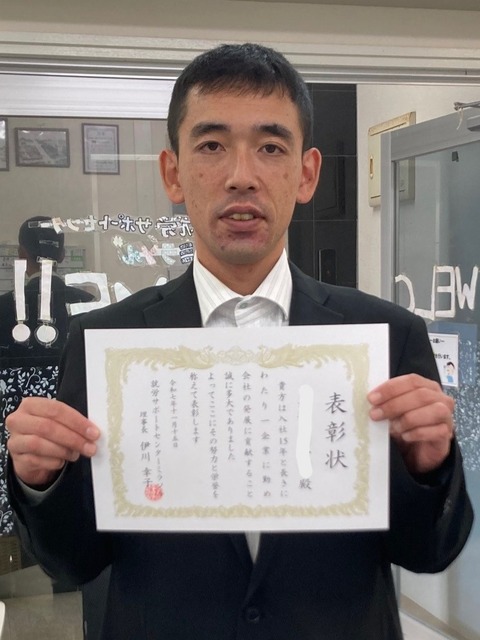 表彰状
殿
貴方は入社15年と長きに
わたり一企業に勤め
会社の発展に貢献すること
誠に多大でありました
よってここにその努力と栄誉を
称えて表彰します
令和七年十一月十五日
就労サポートセンターミラ
理事長 伊川 幸子
就労サポートセンター
!!
WELC